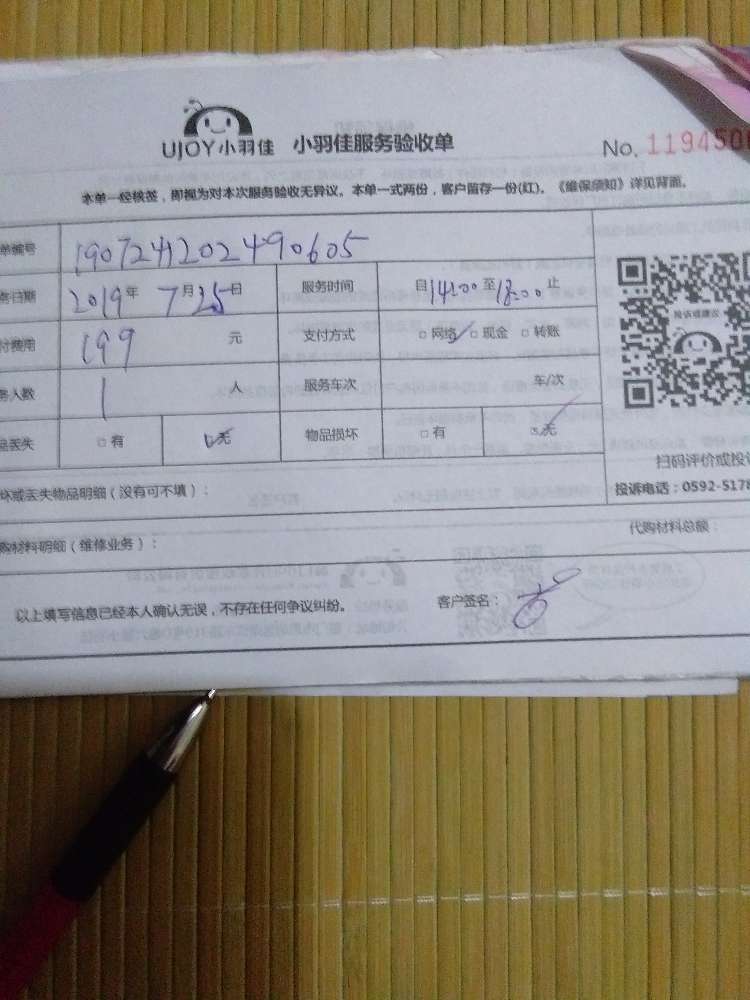 UJOY小羽佳 小羽佳服务验收单
No. 1194500
本单一经核签，即视为对本次服务验收无异议。本单一式两份，客户留存一份(红)。《维保须知》详见背面。
单编号 1907241202490605
务日期 2019年 7月25日 服务时间 自14:00至18:00止
付费用 199 元 支付方式 □网络 □现金 □转账
务人数 1 人 服务车次 车/次
品丢失 □有 □无 物品损坏 □有 □无
投诉或建议
扫码评价或投诉
投诉电话：0592-5178
坏或丢失物品明细（没有可不填）：
购材料明细（维修业务）： 代购材料总额：
以上填写信息已经本人确认无误，不存在任何争议纠纷。 客户签名：